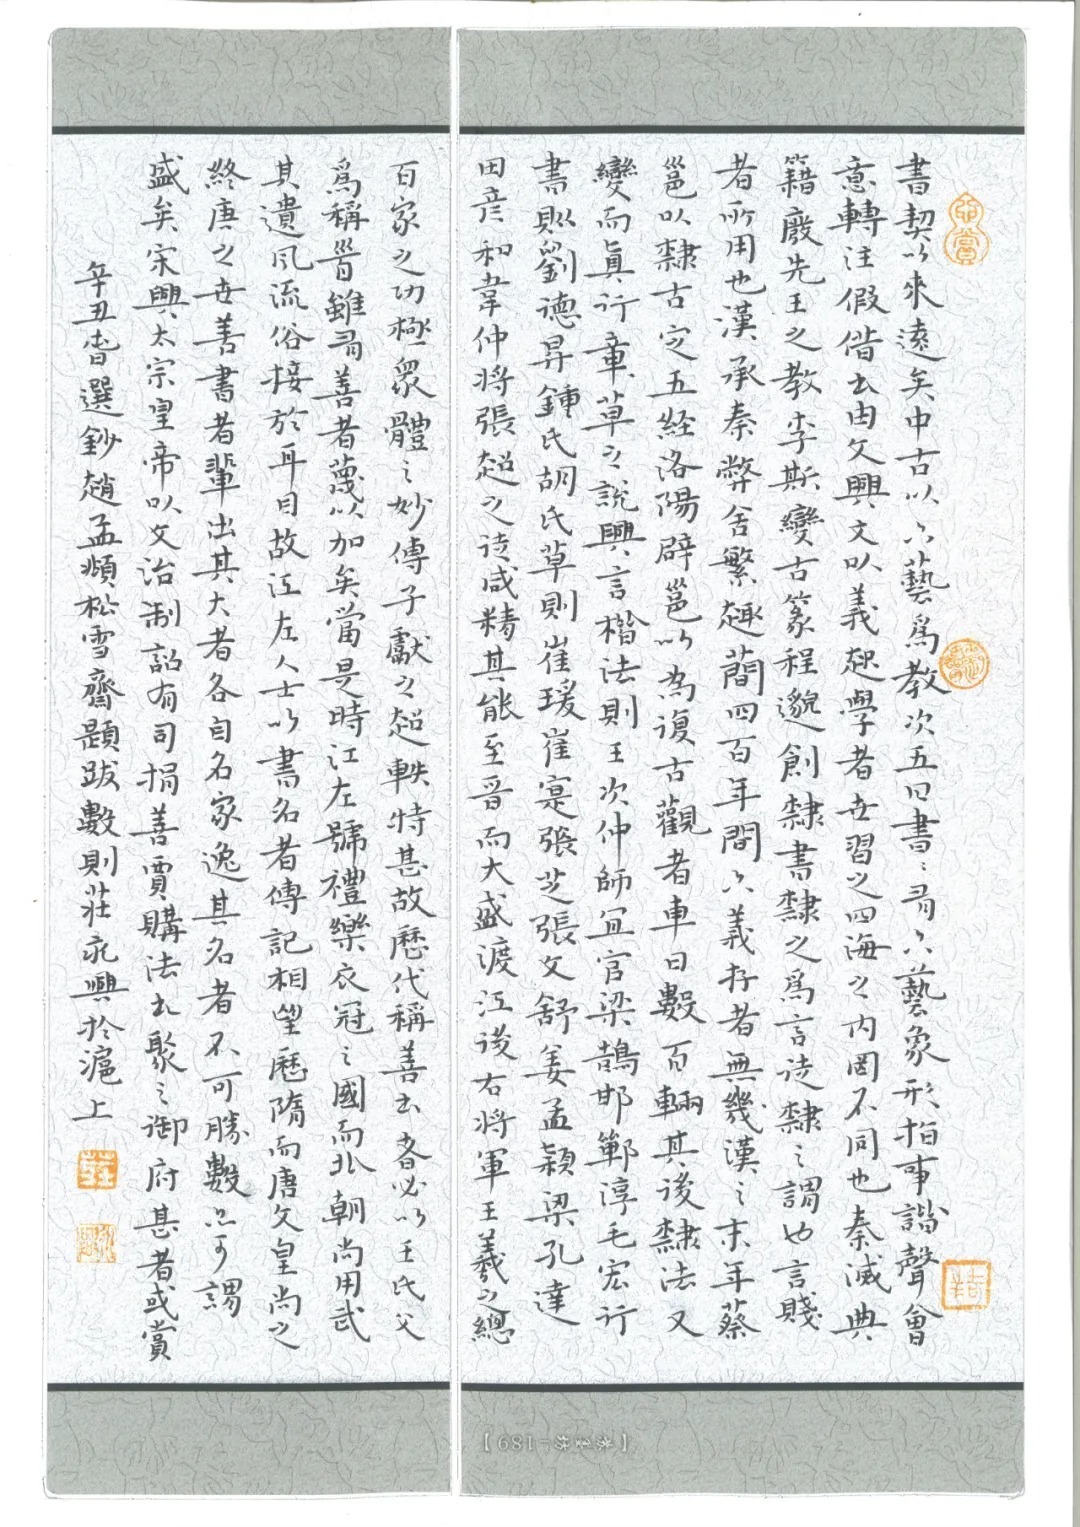 書契以來遠矣中古以六藝爲教次五曰書書有六藝象形指事諧聲會
意轉注假借書由文興文以義起學者世習之四海之内罔不同也秦滅典
籍廢先王之教李斯變古篆程邈創隸書隸之爲言徒隸之謂也言賤
者所用也漢承秦弊舍繁趣簡四百年間六義存者無幾漢之末年蔡
邕以隸古定五経洛陽辟邕以為復古觀者車日數百輛其後隸法又
變而真行章草之說興言楷法則王次仲師宜官梁鵠邯鄲淳毛宏行
書則劉德昇鍾氏胡氏草則崔瑗崔寔張芝張文舒姜孟穎梁孔達
田彦和韋仲将張超之徒咸精其能至晋而大盛渡江後右将軍王羲之總
百家之功極衆體之妙傳子獻之超軼特甚故歷代稱善書者必以王氏父
爲稱首雖有善者蔑以加矣當是時江左號禮樂衣冠之國而北朝尚用武
其遺風流俗接於耳目故江左人士以書名者傳記相望歷隋而唐文皇尚之
終唐之世善書者輩出其大者各自名家逸其名者不可勝數亦可謂
盛矣宋興太宗皇帝以文治制詔有司捐善賈購法書聚之御府甚者或賞
辛丑春選鈔趙孟頫松雪齋題跋數則莊永興於滬上